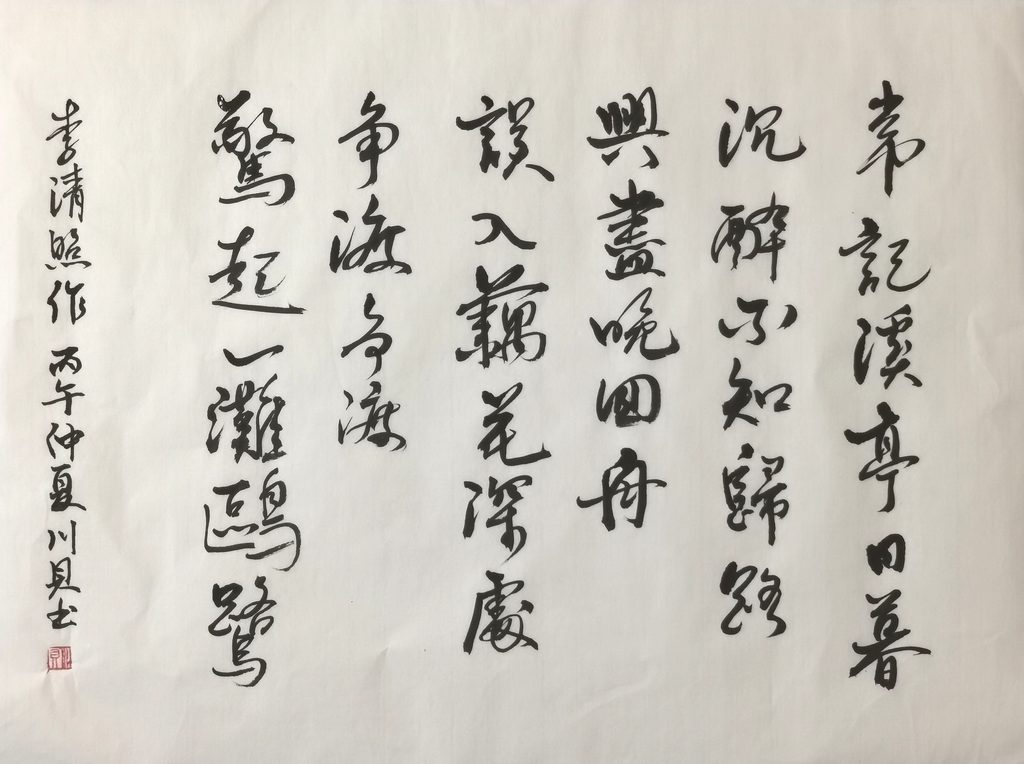 常記溪亭日暮
沉醉不知歸路
興盡晚回舟
誤入藕花深處
爭渡爭渡
驚起一灘鷗鷺
李清照作 丙午仲夏川貝书